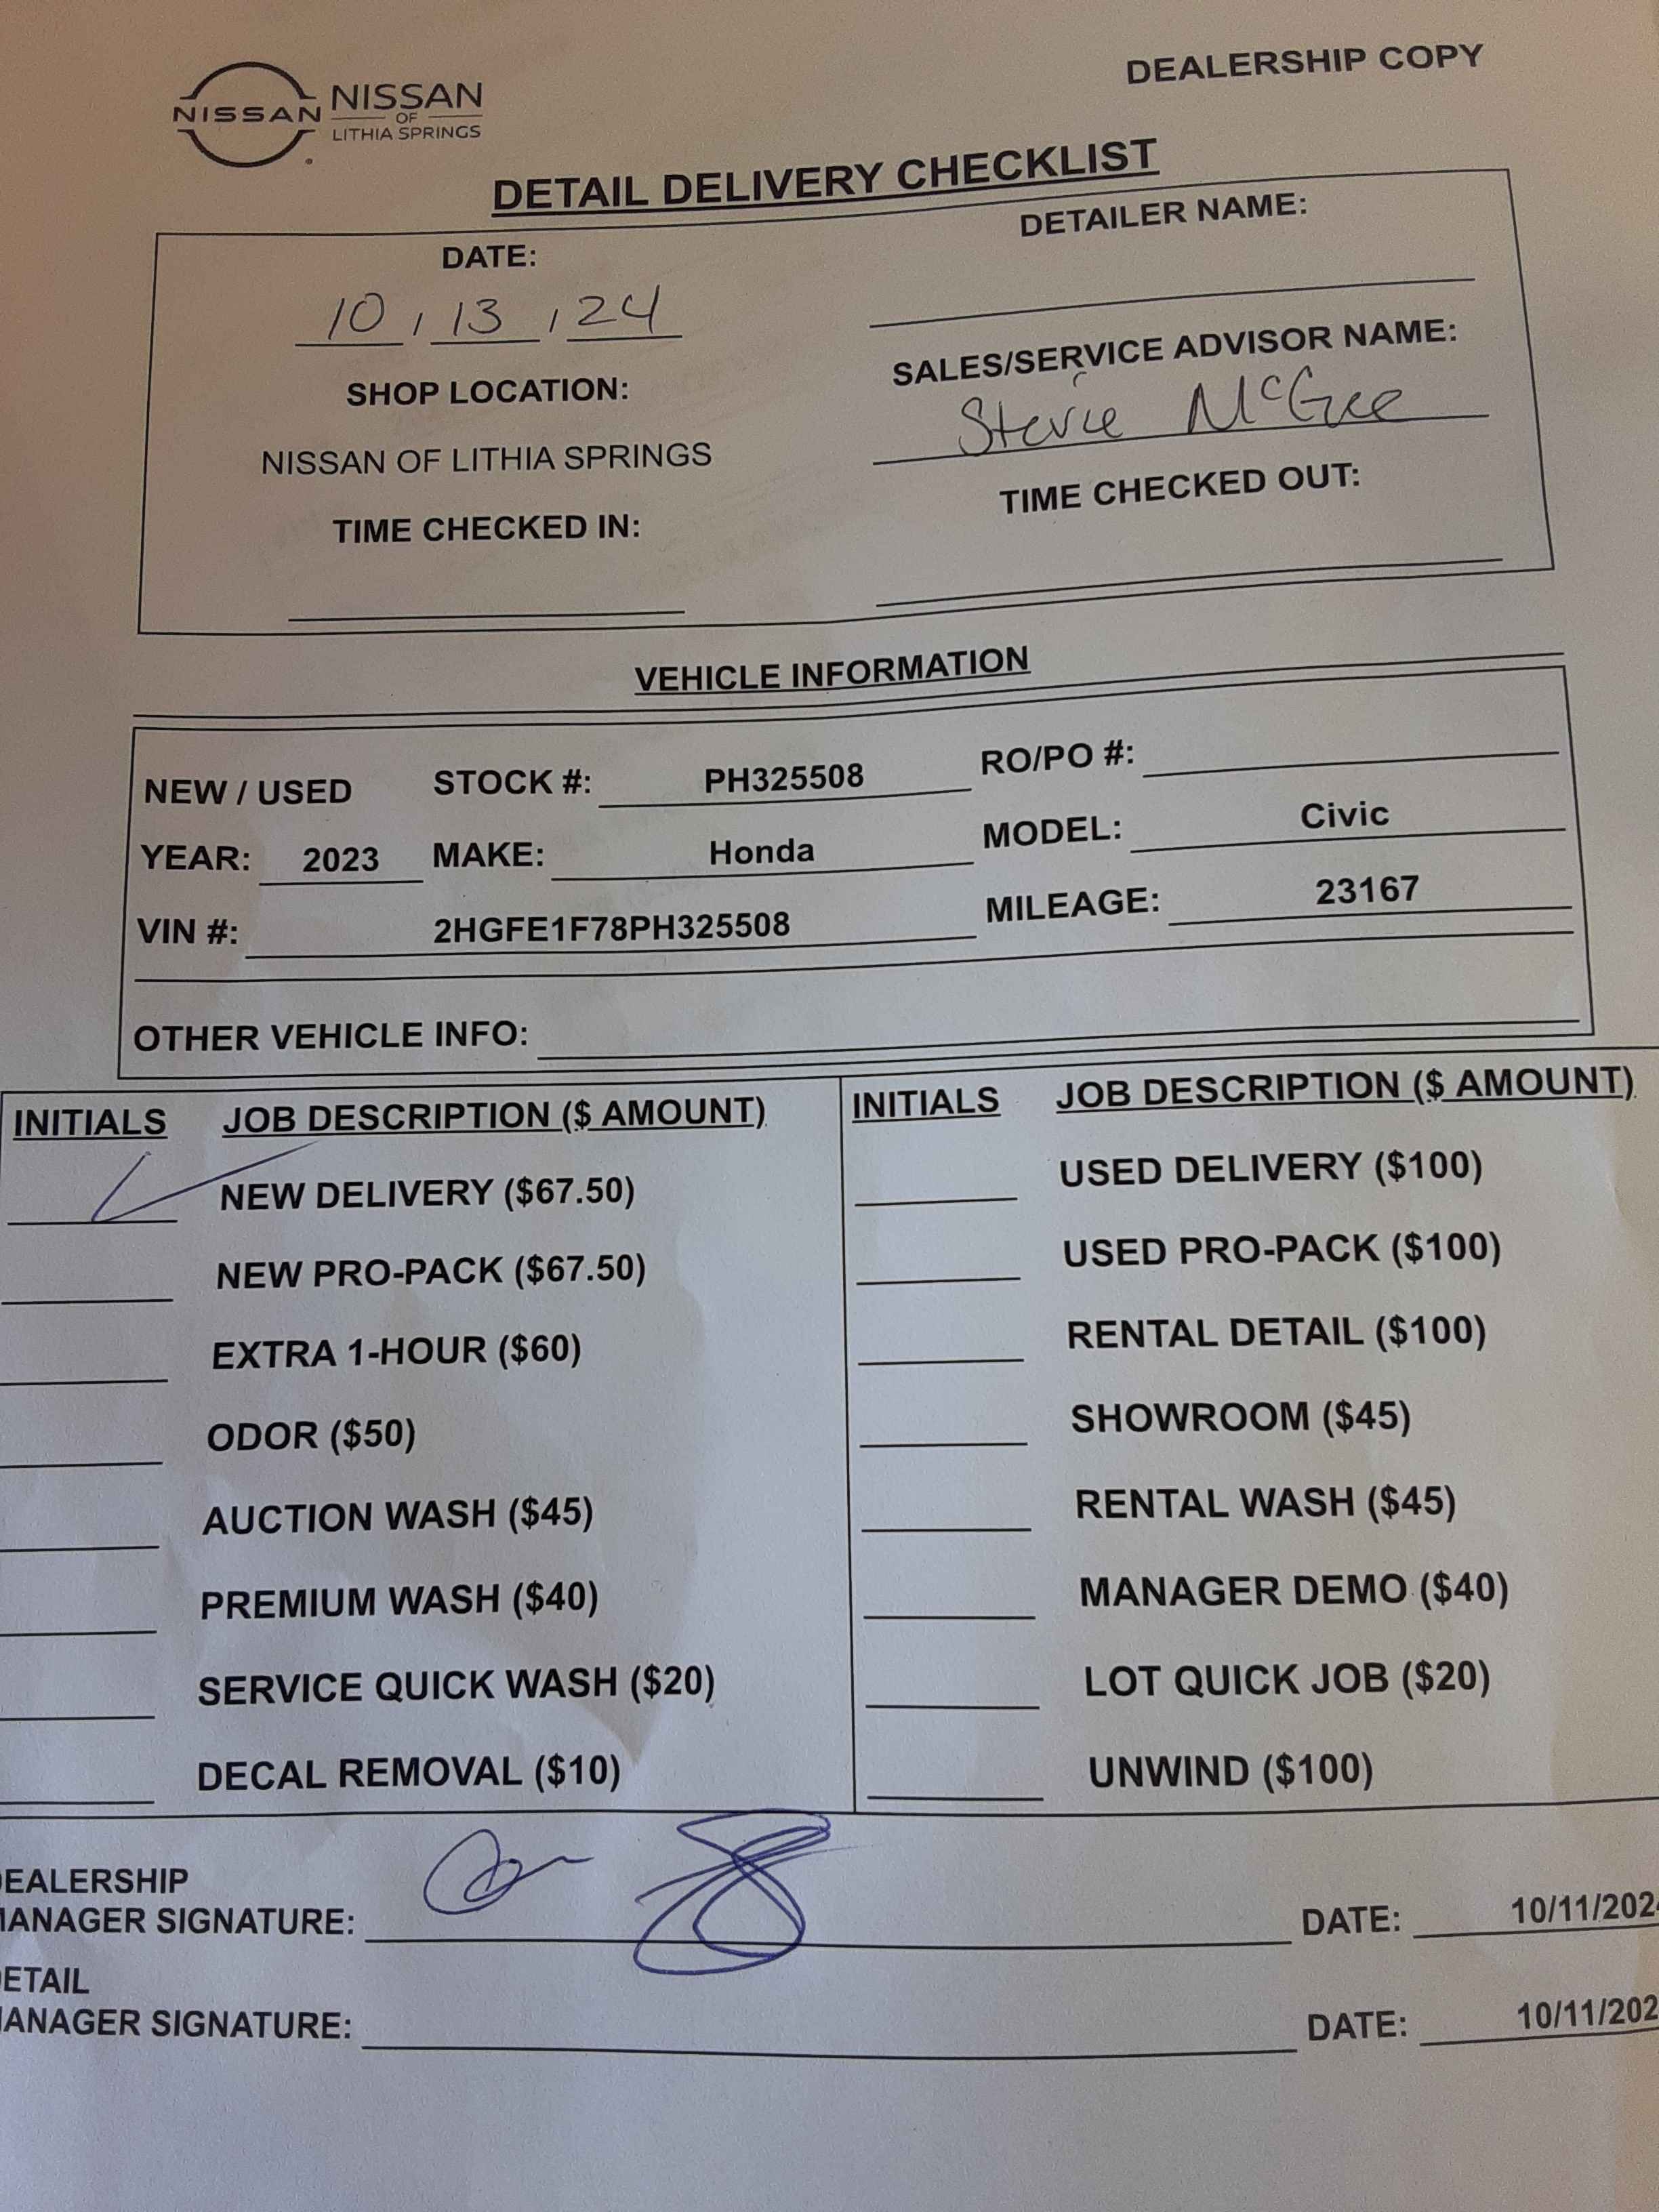 DEALERSHIP COPY
NISSAN
NISSAN
OF
LITHIA SPRINGS
DETAIL DELIVERY CHECKLIST
DATE:
10 / 13 / 24
SHOP LOCATION:
NISSAN OF LITHIA SPRINGS
TIME CHECKED IN:
DETAILER NAME:
SALES/SERVICE ADVISOR NAME:
Stevie McGee
TIME CHECKED OUT:
VEHICLE INFORMATION
NEW / USED STOCK #: PH325508 RO/PO #:
YEAR: 2023 MAKE: Honda MODEL: Civic
VIN #: 2HGFE1F78PH325508 MILEAGE: 23167
OTHER VEHICLE INFO:
INITIALS JOB DESCRIPTION ($ AMOUNT)
NEW DELIVERY ($67.50)
NEW PRO-PACK ($67.50)
EXTRA 1-HOUR ($60)
ODOR ($50)
AUCTION WASH ($45)
PREMIUM WASH ($40)
SERVICE QUICK WASH ($20)
DECAL REMOVAL ($10)
INITIALS JOB DESCRIPTION ($ AMOUNT)
USED DELIVERY ($100)
USED PRO-PACK ($100)
RENTAL DETAIL ($100)
SHOWROOM ($45)
RENTAL WASH ($45)
MANAGER DEMO ($40)
LOT QUICK JOB ($20)
UNWIND ($100)
EALERSHIP
ANAGER SIGNATURE: DATE: 10/11/202
ETAIL
ANAGER SIGNATURE: DATE: 10/11/202